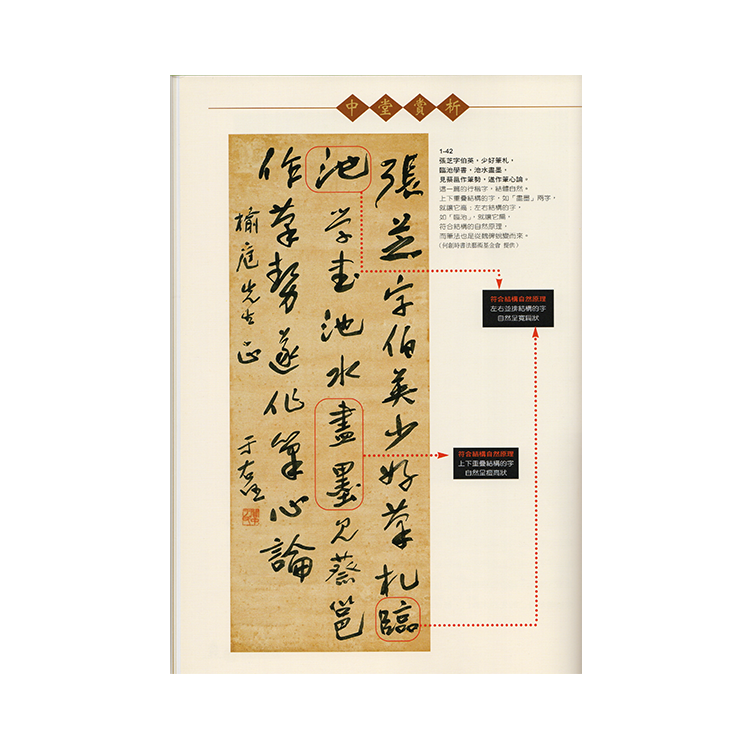 中堂賞析
1-42
張芝字伯英，少好筆札，
臨池學書，池水盡墨，
見蔡邕作筆勢，遂作筆心論。
這一幅的行楷字，結體自然。
上下重疊結構的字，如「盡墨」兩字，
就讓它高；左右結構的字，
如「臨池」，就讓它扁，
符合結構的自然原理，
而筆法也是從魏碑蛻變而來。
（何創時書法藝術基金會 提供）
張芝字伯英少好筆札臨
池學書池水盡墨見蔡邕
作筆勢遂作筆心論
楡庭先生正
于右任
符合結構自然原理
左右並排結構的字
自然呈寬扁狀
符合結構自然原理
上下重疊結構的字
自然呈瘦高狀